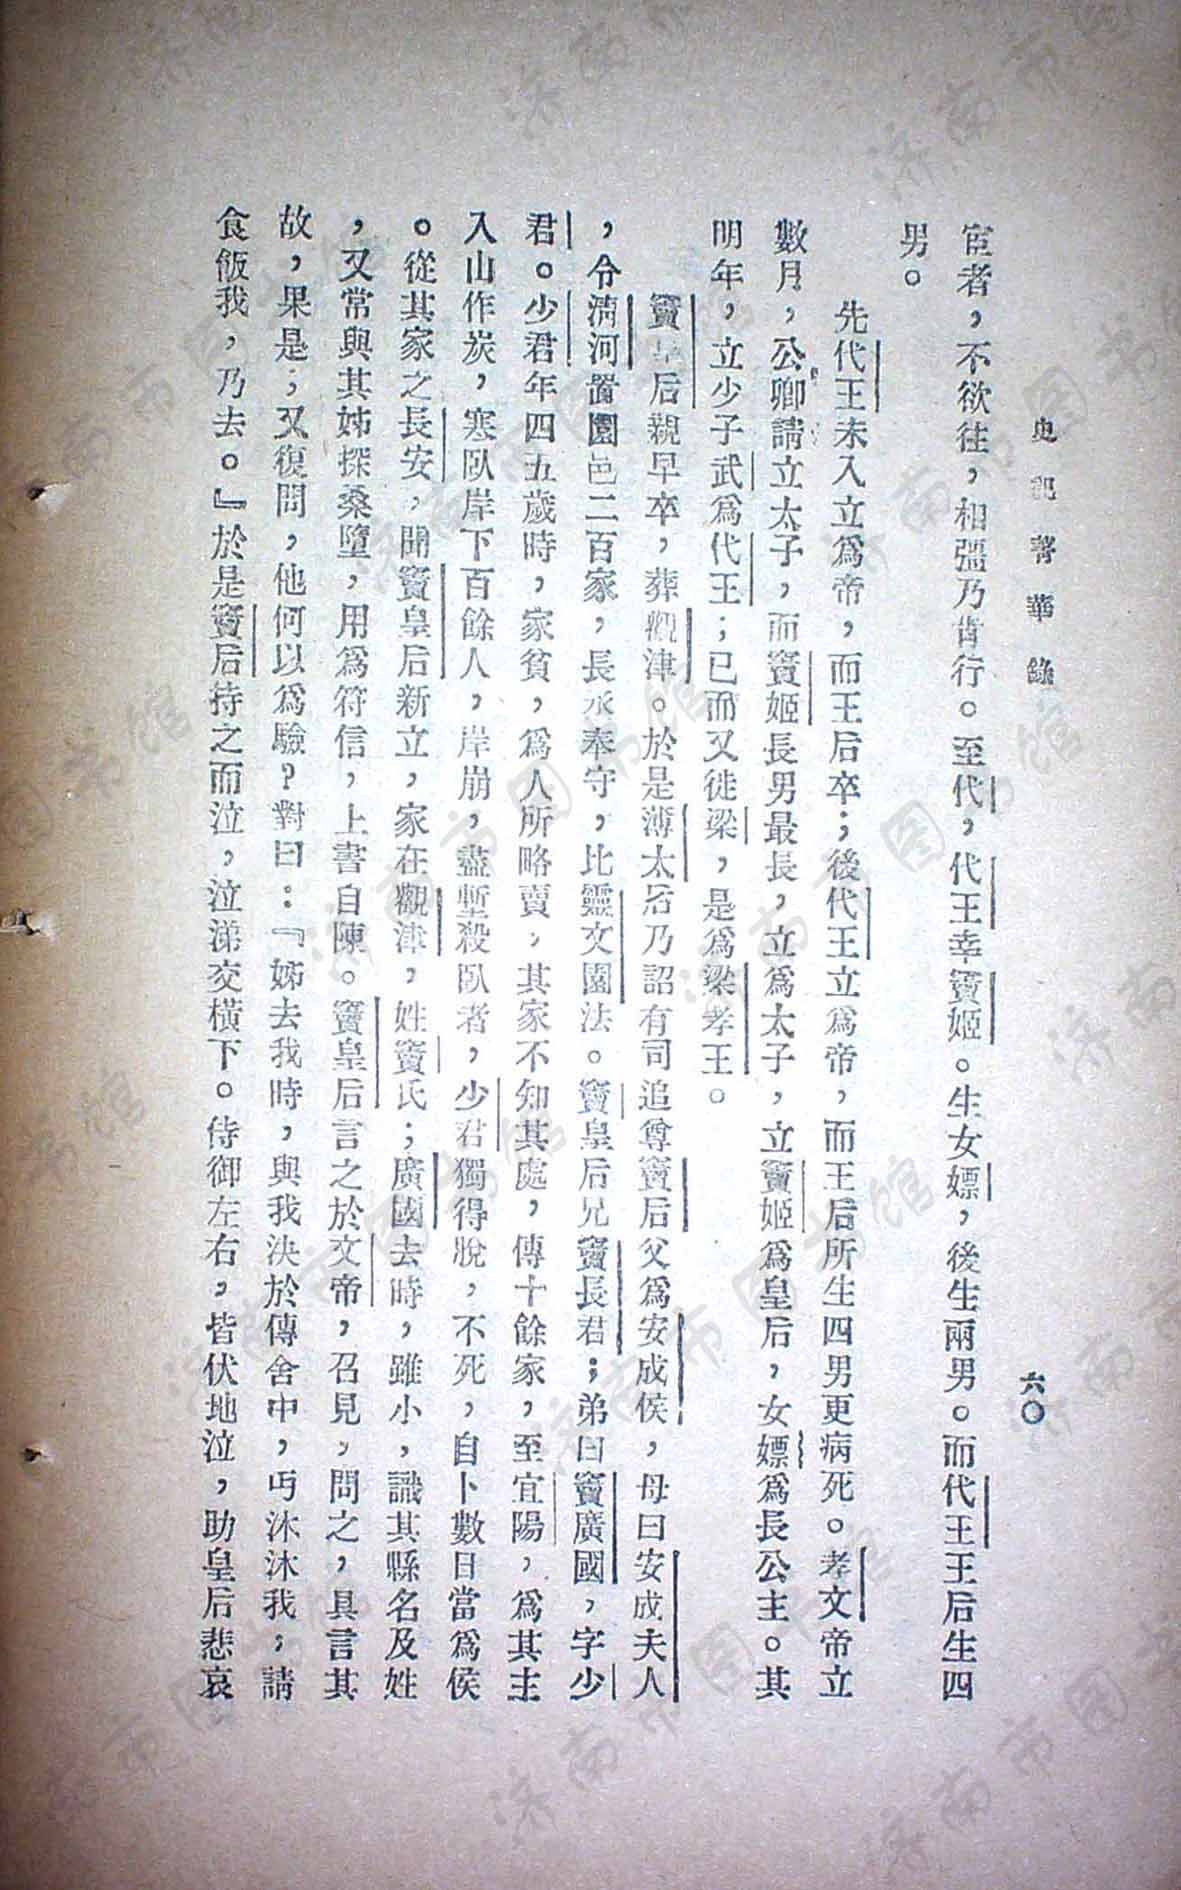 史記菁華錄
六〇
宦者，不欲往，相彊乃肯行。至代，代王幸竇姬。生女嫖，後生兩男。而代王王后生四
男。
先代王未入立爲帝，而王后卒；後代王立爲帝，而王后所生四男更病死。孝文帝立
數月，公卿請立太子，而竇姬長男最長，立爲太子，立竇姬爲皇后，女嫖爲長公主。其
明年，立少子武爲代王；已而又徙梁，是爲梁孝王。
竇皇后親早卒，葬觀津。於是薄太后乃詔有司追尊竇后父爲安成侯，母曰安成夫人
，令淸河置園邑二百家，長丞奉守，比靈文園法。竇皇后兄竇長君；弟曰竇廣國，字少
君。少君年四五歲時，家貧，爲人所略賣，其家不知其處，傳十餘家，至宜陽，爲其主
入山作炭，寒臥岸下百餘人，岸崩，盡壓殺臥者，少君獨得脫，不死，自卜數日當爲侯
。從其家之長安，聞竇皇后新立，家在觀津，姓竇氏；廣國去時，雖小，識其縣名及姓
，又常與其姊採桑墮，用爲符信，上書自陳。竇皇后言之於文帝，召見，問之，具言其
故，果是；又復問，他何以爲驗？對曰：『姊去我時，與我決於傳舍中，丐沐沐我，請
食飯我，乃去。』於是竇后持之而泣，泣涕交橫下。侍御左右，皆伏地泣，助皇后悲哀
济南市图书馆